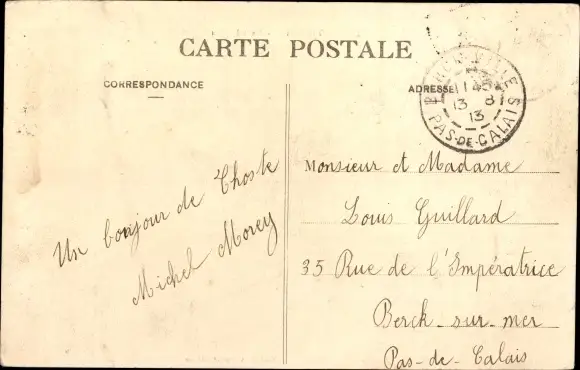 CARTE POSTALE
CORRESPONDANCE
ADRESSE
BERCK-VILLE
11 45
13 8
13
PAS-DE-CALAIS
Un bonjour de Thoste
Michel Morey
Monsieur et Madame
Louis Guillard
35 Rue de l'Impératrice
Berck-sur-mer
Pas-de-Calais